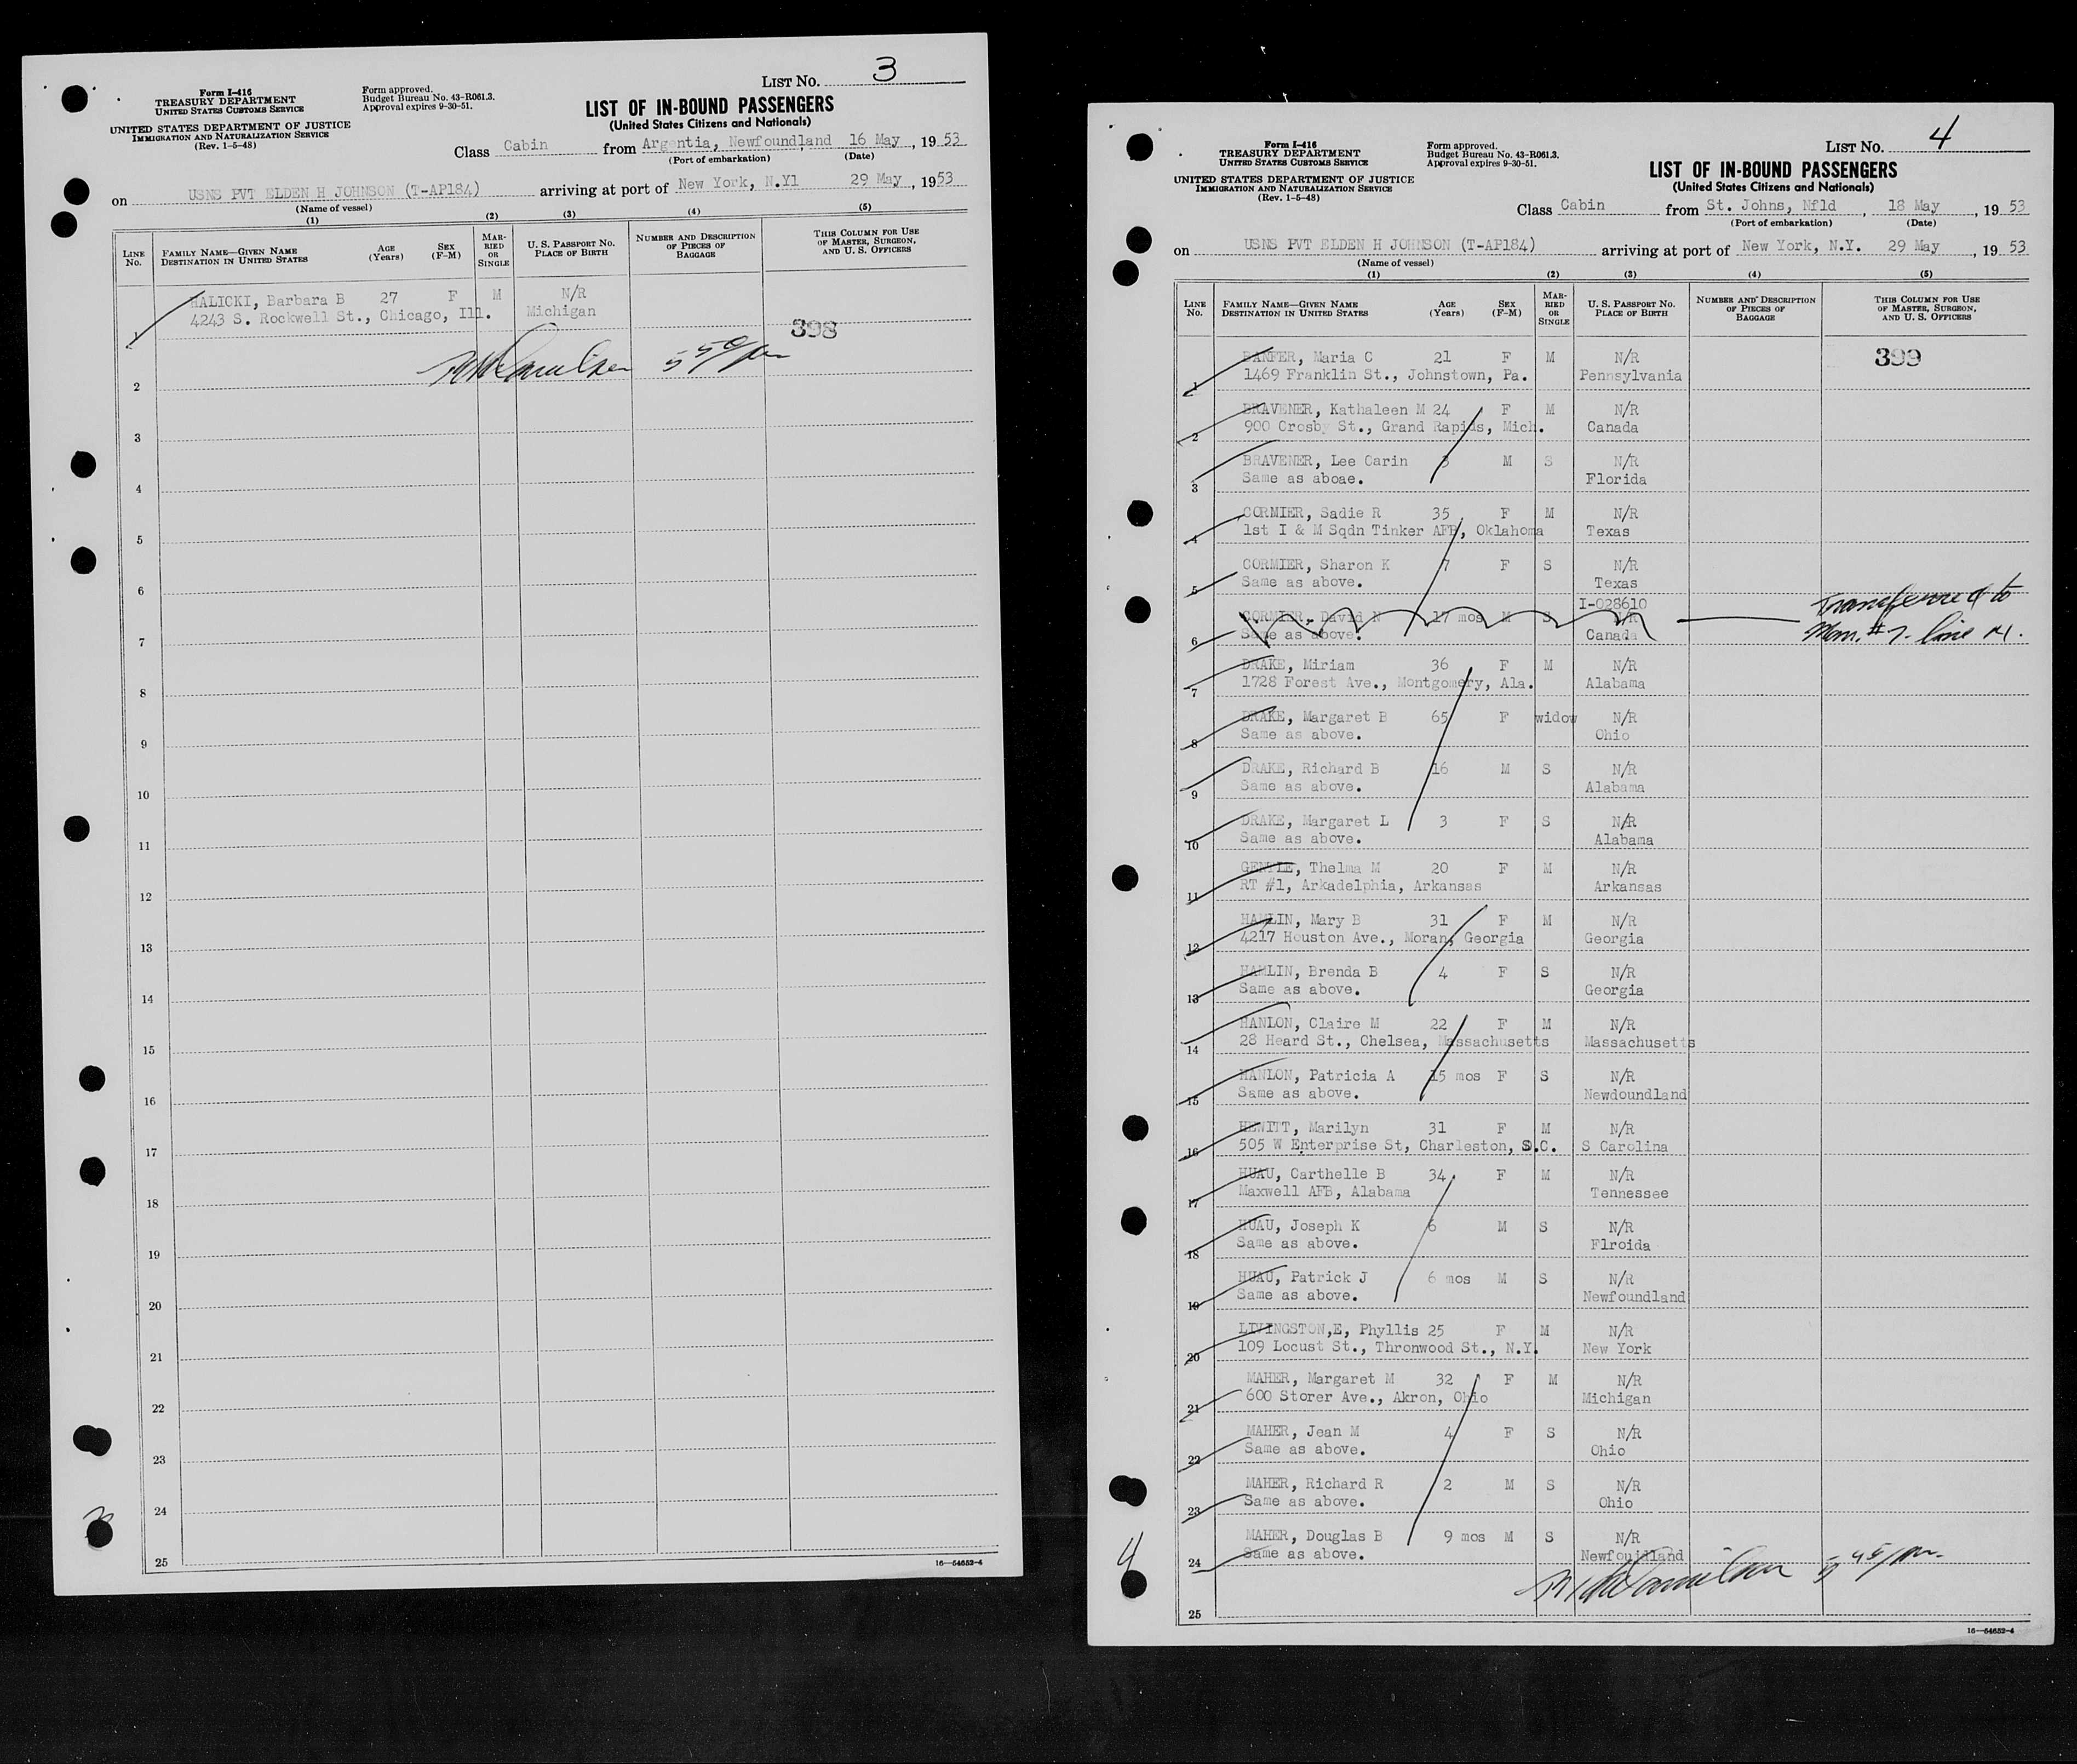 Form I-416
TREASURY DEPARTMENT
UNITED STATES CUSTOMS SERVICE
UNITED STATES DEPARTMENT OF JUSTICE
IMMIGRATION AND NATURALIZATION SERVICE
(Rev. 1-5-48)
Form approved.
Budget Bureau No. 43-R061.3.
Approval expires 9-30-51.
LIST NO. 3
LIST OF IN-BOUND PASSENGERS
(United States Citizens and Nationals)
Class Cabin from Argentia, Newfoundland 16 May, 1953
(Port of embarkation) (Date)
on USNS PVT ELDEN H JOHNSON (T-AP184) arriving at port of New York, N.Yl 29 May, 1953
(Name of vessel)
(1) (2) (3) (4) (5)
LINE NO. FAMILY NAME—GIVEN NAME DESTINATION IN UNITED STATES AGE (Years) SEX (F-M) MARRIED OR SINGLE U. S. PASSPORT NO. PLACE OF BIRTH NUMBER AND DESCRIPTION OF PIECES OF BAGGAGE THIS COLUMN FOR USE OF MASTER, SURGEON, AND U. S. OFFICERS
HALICKI, Barbara B 27 F M N/R
1 4243 S. Rockwell St., Chicago, Ill. Michigan 398
2 5 50/pm
3
4
5
6
7
8
9
10
11
12
13
14
15
16
17
18
19
20
21
22
23
24
25
16—54652-4
3
Form I-416
TREASURY DEPARTMENT
UNITED STATES CUSTOMS SERVICE
UNITED STATES DEPARTMENT OF JUSTICE
IMMIGRATION AND NATURALIZATION SERVICE
(Rev. 1-5-48)
Form approved.
Budget Bureau No. 43-R061.3.
Approval expires 9-30-51.
LIST NO. 4
LIST OF IN-BOUND PASSENGERS
(United States Citizens and Nationals)
Class Cabin from St. Johns, Nfld, 18 May, 1953
(Port of embarkation) (Date)
on USNS PVT ELDEN H JOHNSON (T-AP184) arriving at port of New York, N.Y. 29 May, 1953
(Name of vessel)
(1) (2) (3) (4) (5)
LINE NO. FAMILY NAME—GIVEN NAME DESTINATION IN UNITED STATES AGE (Years) SEX (F-M) MARRIED OR SINGLE U. S. PASSPORT NO. PLACE OF BIRTH NUMBER AND DESCRIPTION OF PIECES OF BAGGAGE THIS COLUMN FOR USE OF MASTER, SURGEON, AND U. S. OFFICERS
Maria C 21 F M N/R 399
1 1469 Franklin St., Johnstown, Pa. Pennsylvania
BRAVENER, Kathaleen M 24 F M N/R
2 900 Crosby St., Grand Rapids, Mich. Canada
BRAVENER, Lee Carin 3 M S N/R
3 Same as aboae. Florida
CORMIER, Sadie R 35 F M N/R
4 1st I & M Sqdn Tinker AFB, Oklahoma Texas
CORMIER, Sharon K 7 F S N/R
5 Same as above. Texas
I-028610
CORMIER, David N 17 mos M S N/R Transferred to
6 Same as above. Canada Man. #7. line 21.
DRAKE, Miriam 36 F M N/R
7 1728 Forest Ave., Montgomery, Ala. Alabama
DRAKE, Margaret B 65 F widow N/R
8 Same as above. Ohio
DRAKE, Richard B 16 M S N/R
9 Same as above. Alabama
DRAKE, Margaret L 3 F S N/R
10 Same as above. Alabama
GENTLE, Thelma M 20 F M N/R
11 RT #1, Arkadelphia, Arkansas Arkansas
HAMLIN, Mary B 31 F M N/R
12 4217 Houston Ave., Moran, Georgia Georgia
HAMLIN, Brenda B 4 F S N/R
13 Same as above. Georgia
HANLON, Claire M 22 F M N/R
14 28 Heard St., Chelsea, Massachusetts Massachusetts
HANLON, Patricia A 15 mos F S N/R
15 Same as above. Newdoundland
HEWITT, Marilyn 31 F M N/R
16 505 W Enterprise St, Charleston, S.C. S Carolina
HUAU, Carthelle B 34 F M N/R
17 Maxwell AFB, Alabama Tennessee
HUAU, Joseph K 6 M S N/R
18 Same as above. Flroida
HUAU, Patrick J 6 mos M S N/R
19 Same as above. Newfoundland
LIVINGSTON,E, Phyllis 25 F M N/R
20 109 Locust St., Thronwood St., N.Y. New York
MAHER, Margaret M 32 F M N/R
21 600 Storer Ave., Akron, Ohio Michigan
MAHER, Jean M 4 F S N/R
22 Same as above. Ohio
MAHER, Richard R 2 M S N/R
23 Same as above. Ohio
MAHER, Douglas B 9 mos M S N/R
24 Same as above. Newfoundland
5 45/pm.
25
16—54652-4
4